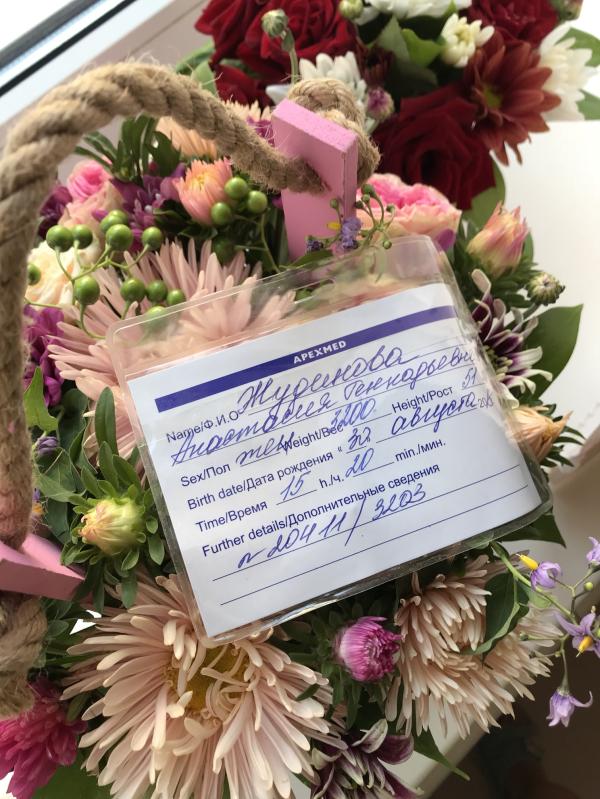 APEXMED
Name/Ф.И.О Жудинова
Анастасия Геннадьевна
Sex/Пол жен Weight/Вес 3200 Height/Рост 51
Birth date/Дата рождения " 30 августа 20
Time/Время 15 h./ч. 20 min./мин.
Further details/Дополнительные сведения
№ 20411/3203